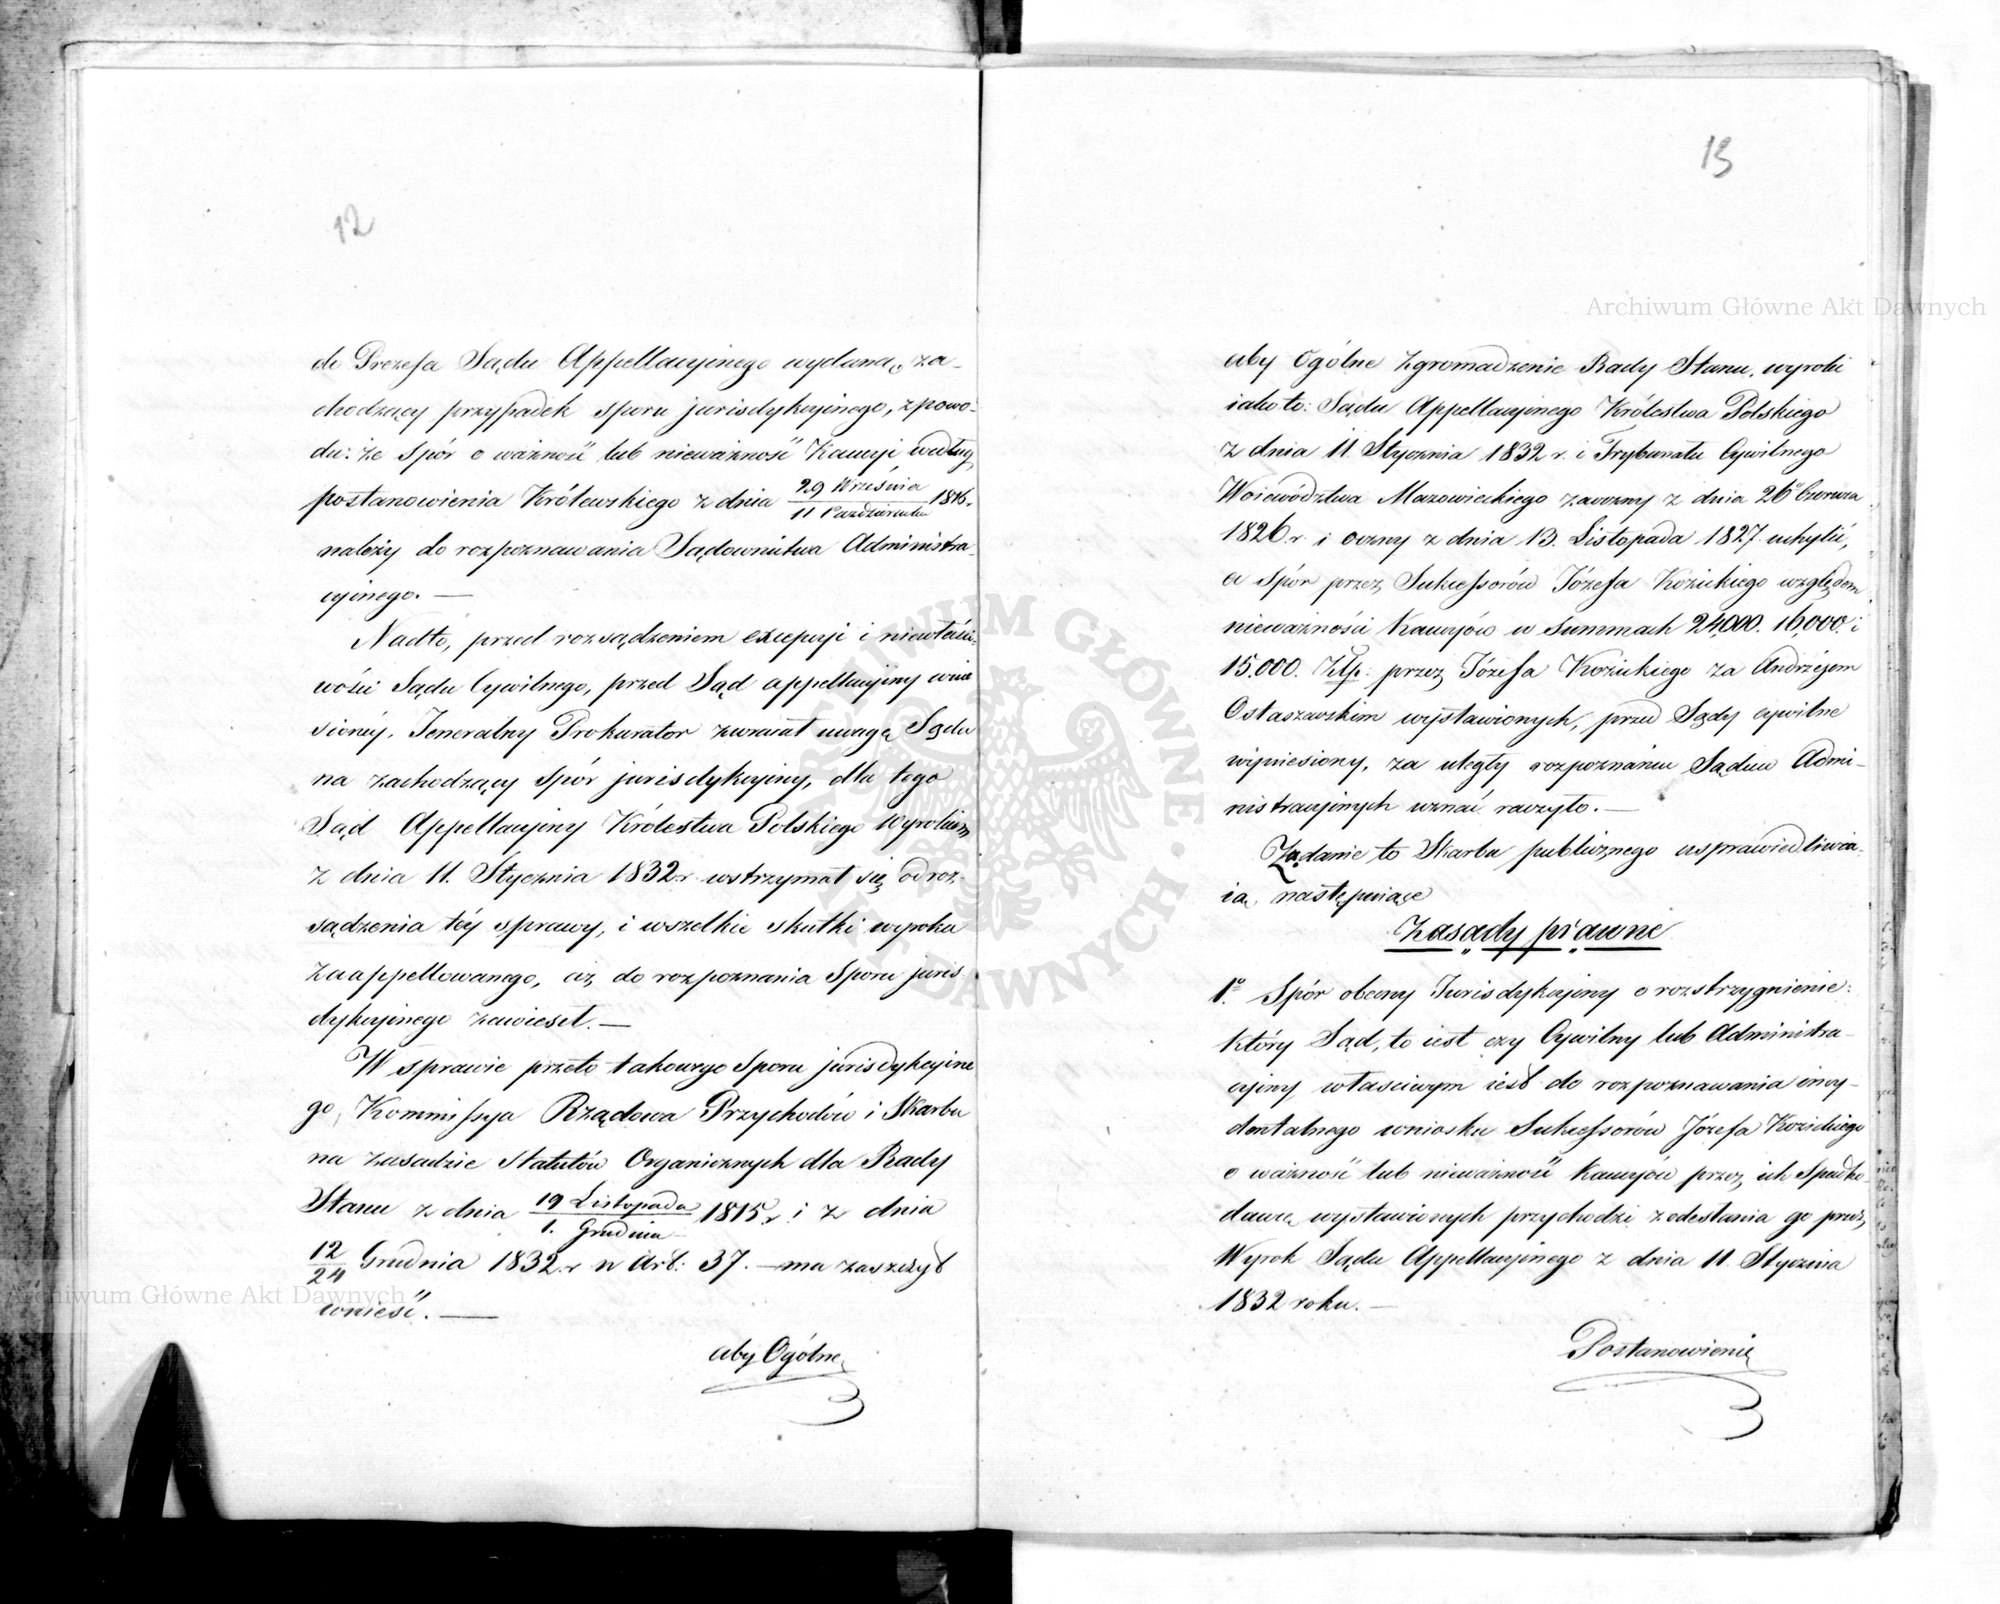 12
do Prezesa Sądu Appellacyjnego wydaną, za-
chodzący przypadek sporu jurisdykcyjnego, z powo-
du: że Spór o ważność lub nieważność Kaucyi według
postanowienia Królewskiego z dnia 29 Września / 11 Października 1816 r.
należy do rozpoznawania Sądownictwa Administra-
cyjnego. —
Nadto, przed rozsądzeniem excepcyi i niewłaści-
wości Sądu Cywilnego, przed Sąd appellacyjny wnie
sionéy, Jeneralny Prokurator zwracał uwagę Sądu
na zachodzący spór jurisdykcyjny, dla tego
Sąd Appellacyjny Królestwa Polskiego Wyrokiem
z dnia 11. Stycznia 1832 r. wstrzymał się od roz-
sądzenia téy sprawy, i wszelkie skutki wyroku
zaappellowanego, aż do rozpoznania Sporu juris-
dykcyjnego zawiesił. —
W sprawie przeto takowego Sporu jurisdykcyjne
go, Kommissya Rządowa Przychodów i Skarbu
na zasadzie Statutów Organicznych dla Rady
Stanu z dnia 19 Listopada / 1. Grudnia 1815 r. i z dnia
12/24 Grudnia 1832 r. w Art: 37. — ma zaszczyt
wnieść. —
aby Ogólne
13
aby Ogólne Zgromadzenie Rady Stanu, wyroki
iako to: Sądu Appellacyjnego Królestwa Polskiego
z dnia 11 Stycznia 1832 r. i Trybunału Cywilnego
Województwa Mazowieckiego zaoczny z dnia 26 Czerwca
1826 r. i oczny z dnia 13. Listopada 1827 uchylić,
a spór przez Sukcessorów Józefa Kozickiego względem
nieważności Kaucyów w Summach 24,000. 16,000. i
15.000. Złp: przez Józefa Kozickiego za Andrzejem
Ostaszewskim wystawionych, przed Sądy cywilne
wyniesiony, za uległy rozpoznaniu Sądów Admi-
nistracyjnych uznać raczyło. —
Żądanie to Skarbu publicznego usprawiedliwia-
ią następuiące
Zasady prawne
1.o Spór obecny Jurisdykcyjny o rozstrzygnienie:
który Sąd, to iest czy Cywilny lub Administra-
cyjny właściwym iest do rozpoznawania incy-
dentalnego wniosku Sukcessorów Józefa Kozickiego
o ważność lub nieważność kaucyów przez ich Spadko-
dawcę wystawionych przychodzi z odesłania go przez
Wyrok Sądu Appellacyjnego z dnia 11. Stycznia
1832 roku. —
Postanowienie
Archiwum Główne Akt Dawnych
Archiwum Główne Akt Dawnych
ARCHIWUM GŁÓWNE AKT DAWNYCH